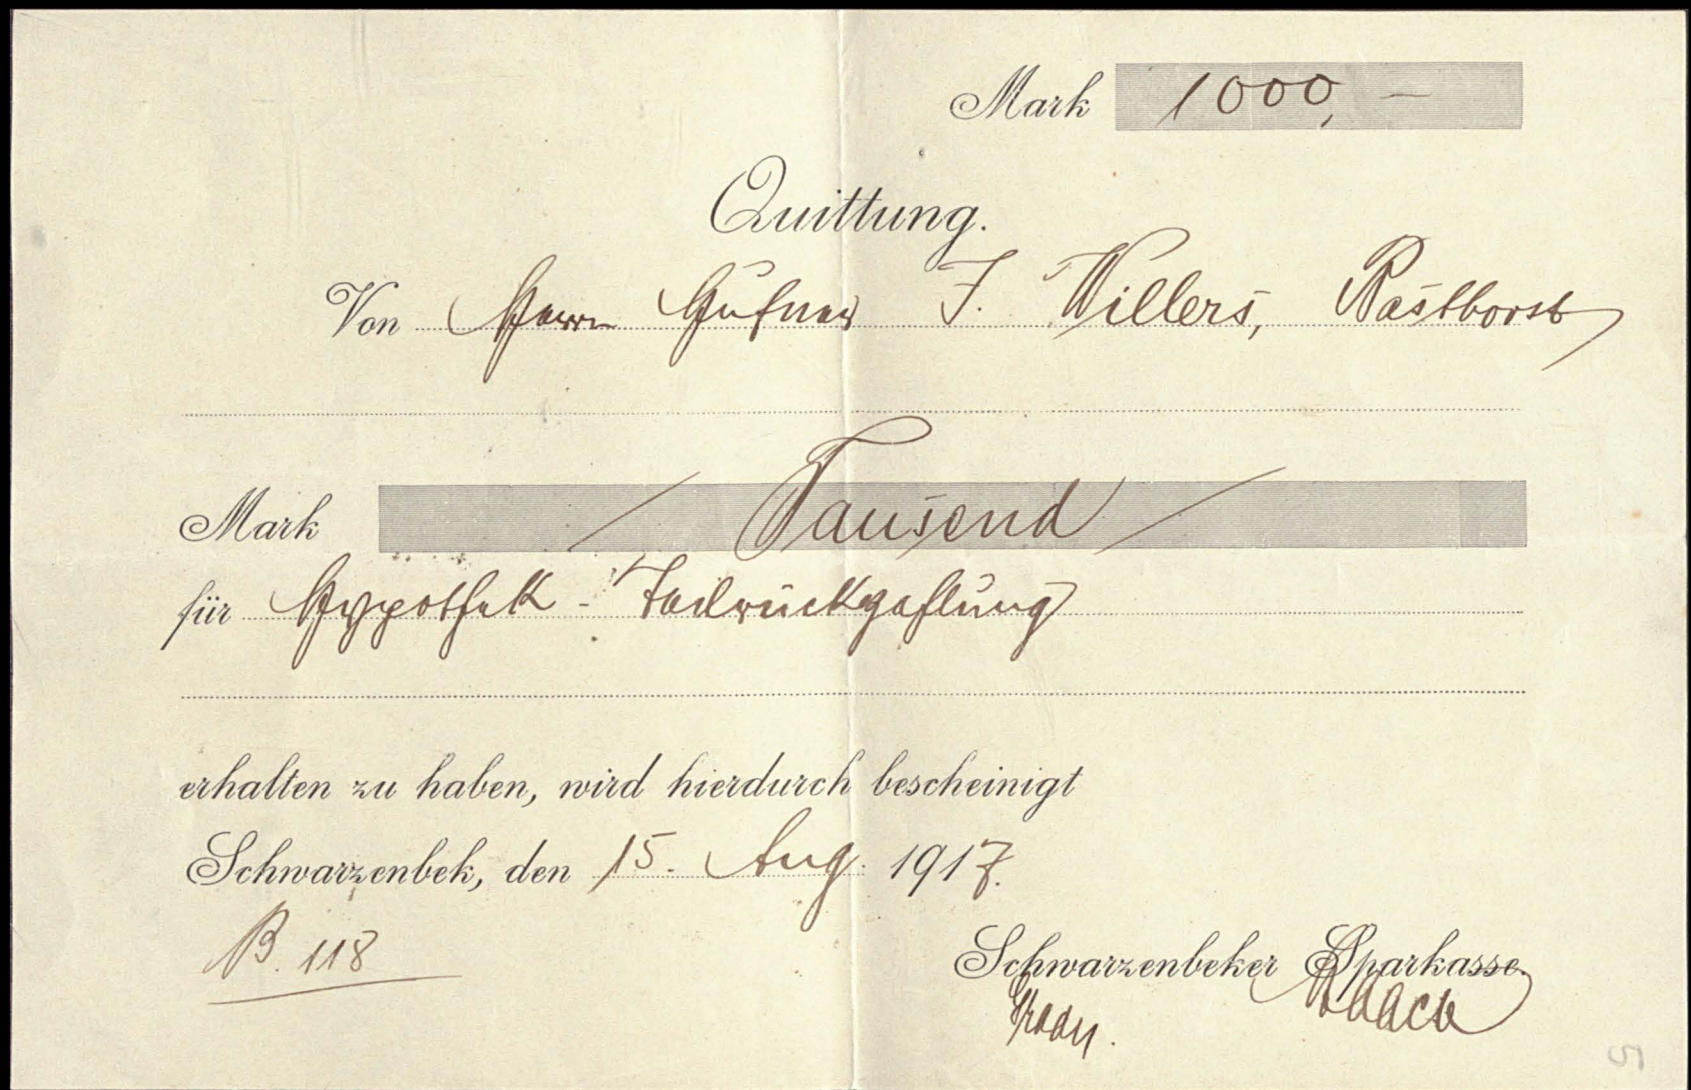 Mark 1000,—
Quittung.
Von Herrn Hufner J. Willers,
Mark / Tausend /
für Hypothek-Teilrückzahlung
erhalten zu haben, wird hierdurch bescheinigt
Schwarzenbek, den 15. Aug. 1917.
B. 118
Schwarzenbeker Sparkasse.
5